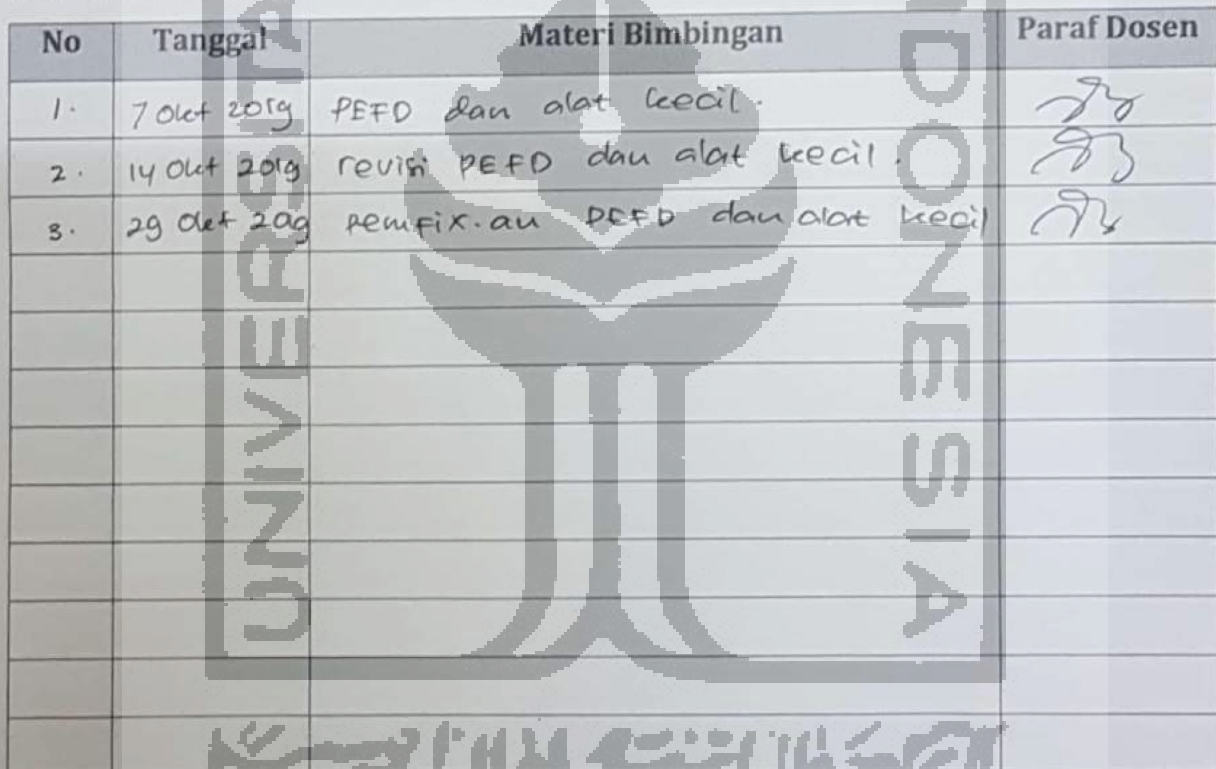 No Tanggal Materi Bimbingan Paraf Dosen
1. 7 Okt 2019 PEFD dan alat kecil.
2. 14 Okt 2019 revisi PEFD dan alat kecil.
3. 29 Okt 2019 pemfix.an PEFD dan alat kecil
UNIVERSITA
DONESIA